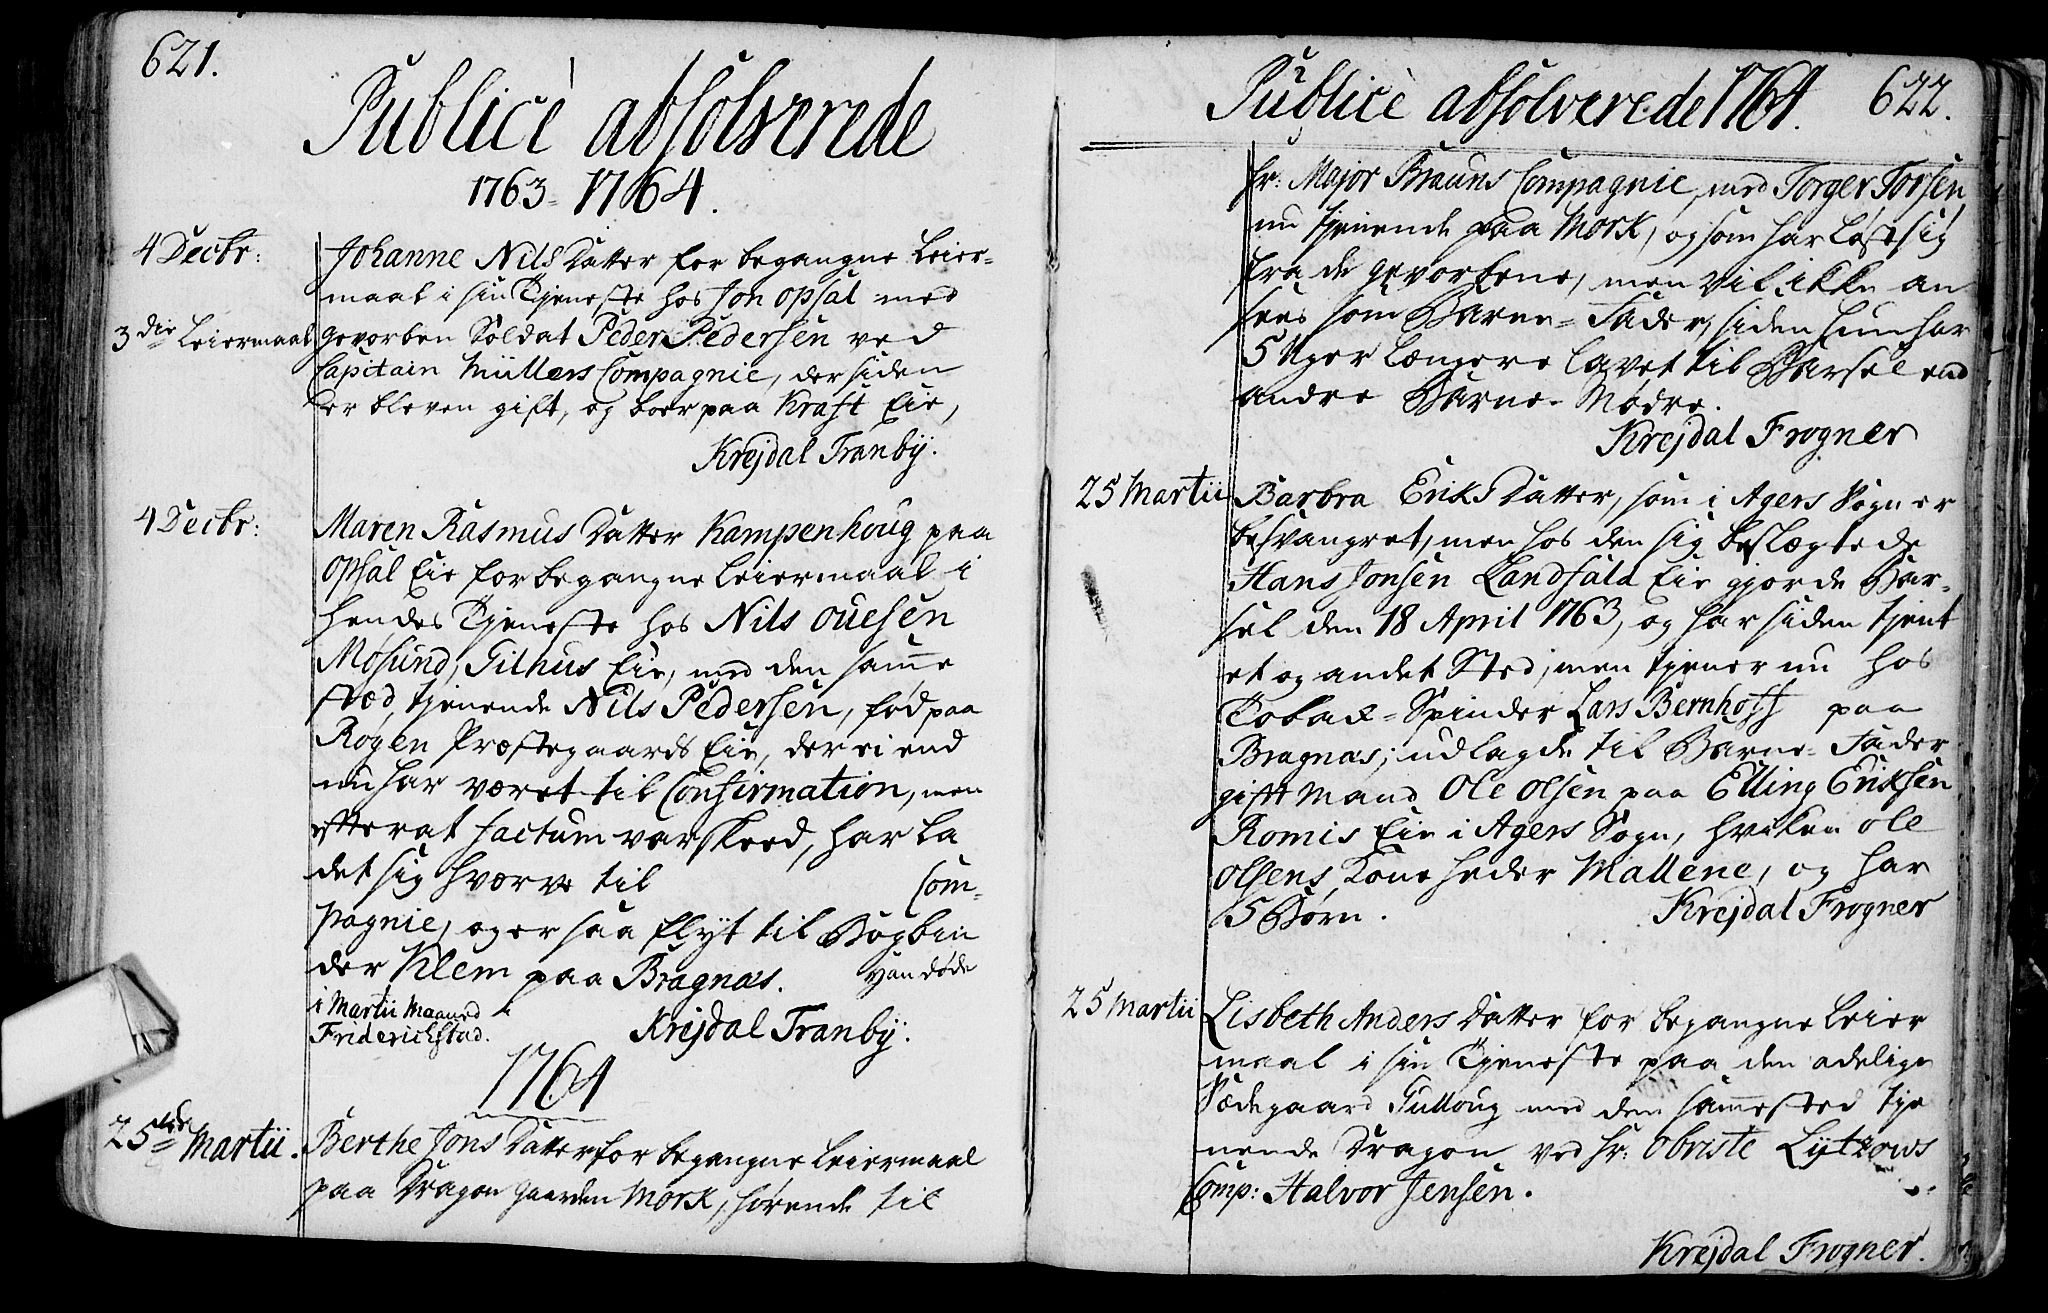 621.
Publicè absolverede
1763 = 1764.
4 Decbr:
Johanne Nils Datter for begangne Leier=
maal i sin Tjeneste hos Jon Opsal med
3die Leiermaal
gevorben Soldat Peder Pedersen ved
Capitain Müllers Compagnie, der siden
er bleven gift, og boer paa Kraft Eie,
Krejdal Tranby.
4 Decbr:
Maren Rasmus Datter Kampenhoug paa
Opsal Eie for begangne Leiermaal i
hendes Tjeneste hos Nils Ouesen
Mosund, Gilhus Eie, med den samme
stæd tjenende Nils Pedersen, fød paa
Rogen Præstegaards Eie, der ei end
nu har været til Confirmation, men
efterat factum var skeed, har la
det sig hværve til Com=
pagnie, og er saa flyt til Bogbin
der Klem paa Bragnæs. Han døde
i Martii Maaned i
Friderichstad.
Krejdal Tranby.
1764
25de Martii.
Berthe Jons Datter for begangne Leiermaal
paa Dragon Gaarden Mork, hørende til
Publicè absolverede 1764. 622.
Hr: Major Brauns Compagnie, med Torger Torsen
nu tjenende paa Mork, og som har løst sig
fra de gevorbene, men vil ikke an
sees som Barne=Fader, siden hun har
5 Uger længere lavet til Barsel end
andre Barne-Mødre.
Krejdal Frogner
25 Martii
Barbra Eriks Datter, som i Agers Sogn er
besvangret, men hos den sig beslægtede
Hans Jonsen Landfald Eie gjorde Bar=
sel den 18 April 1763, og har siden tjent
et og andet Sted, men tjener nu hos
Tobak=Spinder Lars Bernhoft paa
Bragnæs; udlagde til Barne=Fader
gift Mand Ole Olsen paa Elling Eriksen
Romis Eie i Agers Sogn, hvilken Ole
Olsens Kone heder Mallene, og har
5 Børn.
Krejdal Frogner
25 Martii
Lisbeth Anders Datter for begangne Leier
maal i sin Tjeneste paa den adelige
Sædegaard Gulloug med den sammested tje
nende Dragon ved Hr: Obriste Lytzows
Comp: Halvor Jensen.
Krejdal Frogner.